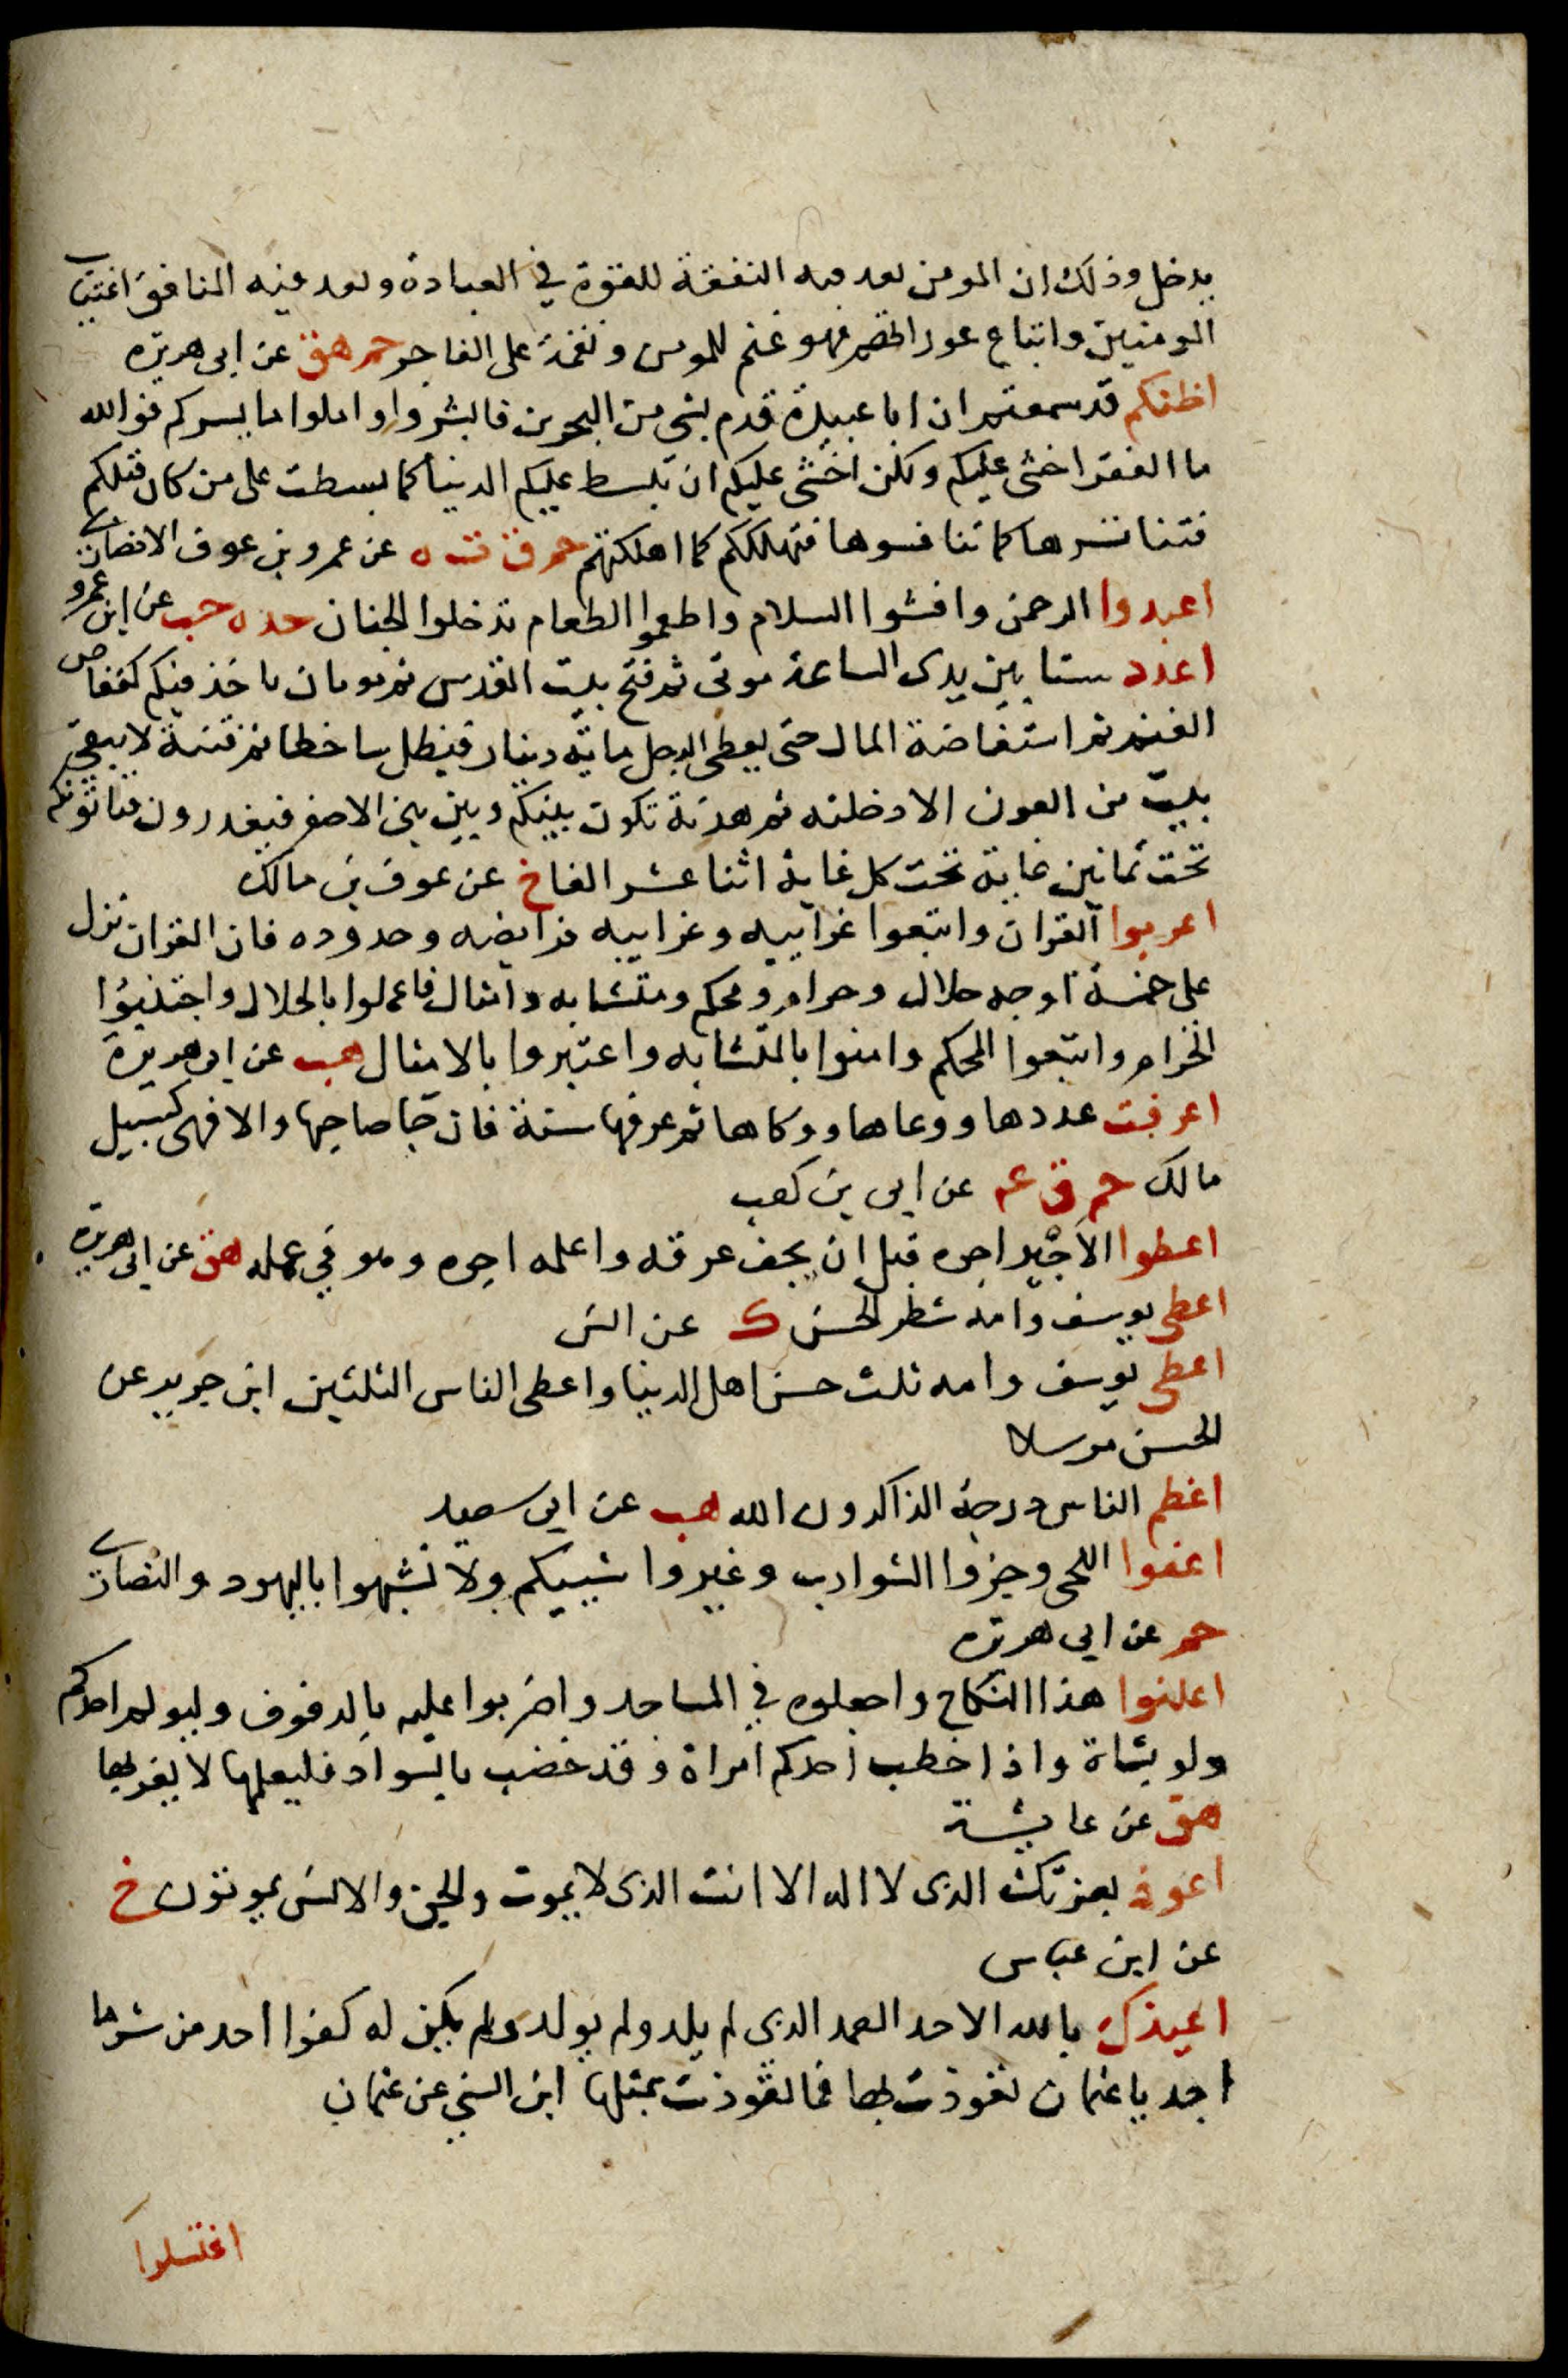 يدخل وذلك ان المومن يعد فيه النفقة للقوة في العبادة ويعد فيه المنافق اغتياب
المومنين واتباع عوراتهم فهو غنم للمومن ونقمة على الفاجر حم هق عن ابى هريره
اظنكم قد سمعتم ان ابا عبيدة قدم بشى من البحرين فابشروا واملوا ما يسركم فوالله
ما الفقر اخشى عليكم ولكن اخشى عليكم ان تبسط عليكم الدنيا كما بسطت على من كان قبلكم
فتنافسوها كما تنافسوها فتهلككم كما اهلكتهم حم ق ت ه عن عمرو بن عوف الانصارى
اعبدوا الرحمن وافشوا السلام واطعموا الطعام تدخلوا الجنان حد ه حب عن ابن عمرو
اعدد ستا بين يدى الساعة موتى ثم فتح بيت القدس ثم موتان ياخذ فيكم كقعاص
الغنم ثم استفاضة المال حتى يعطى الرجل ماية دينار فيظل ساخطا ثم فتنة لا يبقى
بيت من العرب الا دخلته ثم هدنة تكون بينكم وبين بنى الاصفر فيغدرون فياتونكم
تحت ثمانين غاية تحت كل غاية اثنا عشر الفا خ عن عوف بن مالك
اعربوا القران واتبعوا غرايبه وغرايبه فرايضه وحدوده فان القران نزل
على خمسة اوجه حلال وحرام ومحكم ومتشابه وامثال فاعملوا بالحلال واجتنبوا
الحرام واتبعوا المحكم وامنوا بالمتشابه واعتبروا بالامثال هب عن ابى هريرة
اعرفت عددها ووعاها ووكاها ثم عرفها سنة فان جا صاحبها والا فهى كسبيل
مالك حم ق عه عن ابى بن كعب
اعطوا الاجير اجره قبل ان يجف عرقه واعلمه اجره وهو في عمله هق عن ابى هريرة
اعطى يوسف وامه شطر الحسن ك عن انس
اعطى يوسف وامه ثلث حسن اهل الدنيا واعطى الناس الثلثين ابن جرير عن
الحسن مرسلا
اعظم الناس درجة الذاكرون الله هب عن ابى سعيد
اعفوا اللحى وجزوا الشوارب وغيروا شيبكم ولا تشبهوا باليهود والنصارى
حم عن ابى هريره
اعلنوا هذا النكاح واجعلوه في المساجد واضربوا عليه بالدفوف وليولم احدكم
ولو بشاة واذا خطب احدكم امراة وقد خضب بالسواد فليعلمها لا يغر بها
هق عن عايشة
اعوذ بعزتك الذى لا اله الا انت الذى لا يموت والجن والانس يموتون خ
عن ابن عباس
اعيذك بالله الاحد الصمد الذى لم يلد ولم يولد ولم يكن له كفوا احد من شر ما
اجد يا عثمان تعوذت بها فما تعوذت بمثلها ابن السنى عن عثمان
اغتسلوا